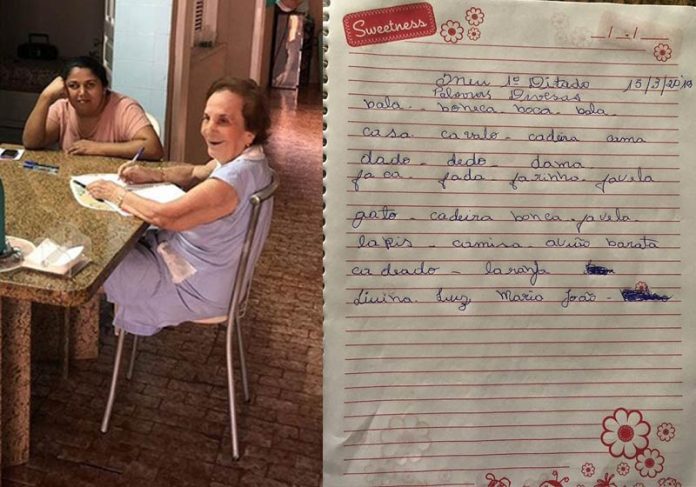 Sweetness
__/__/__
Meu 1º Ditado 15/3/2019
Palavras Diversas
bala - boneca - boca - bola
casa cavalo - cadeira cama
dado - dedo - dama
faca - fada - farinha - favela
gato - cadeira bonca - favela
lapis - camisa - avião barata
cadeado - laranja
Livina. Luz, Maria João -